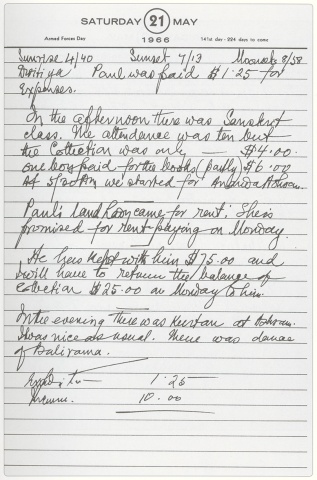 SATURDAY 21 MAY
Armed Forces Day 1966 141st day - 224 days to come
Sunrise 4/40 Sunset 7/13 Moonrise 8/58
Dvitiya Paul was paid $1.25 for
expenses.
In the afternoon there was Sanskrit
class. The attendance was ten but
the Collection was only — $4.00.
one boy paid for the books (partly) $6.00
At 5/30 PM we started for Ananda Ashram.
Paul's land Lord came for rent. She is
promised for rent paying on Monday
He has kept with him $75.00 and
I will have to return the balance of
collection $25.00 on Monday to him.
In the evening there was Kirtan at Ashram.
It was nice as usual. There was dance
of Balirama.
Expenditure — 1.25
Income 10.00